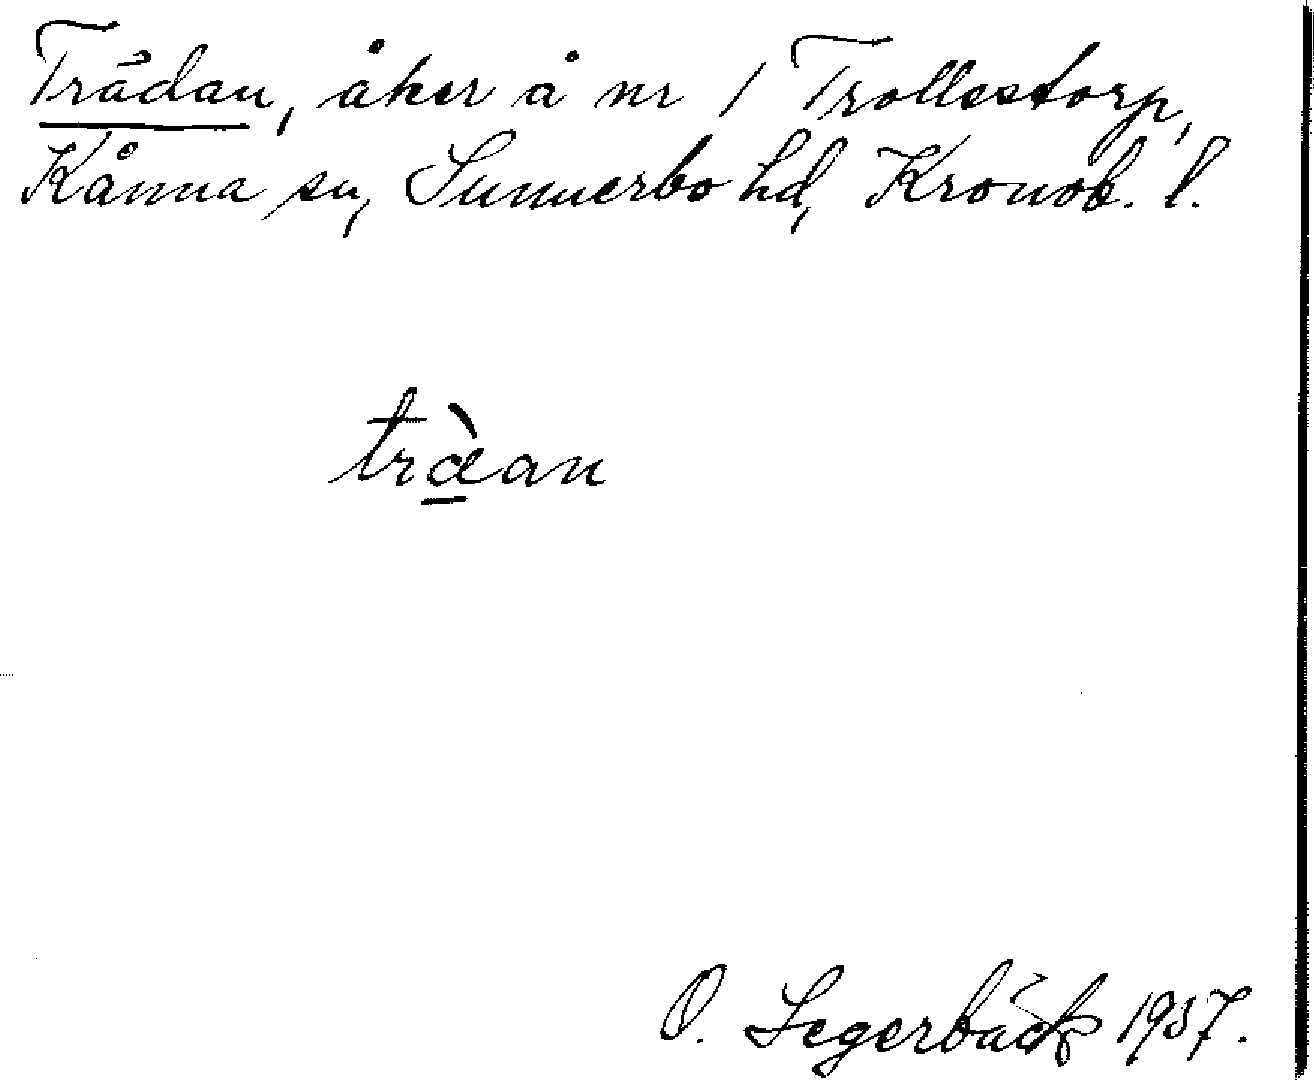 Trädan, åker å nr 1 Trollestorp,
Kånna sn, Sunnerbo hd, Kronob. l.
træ̱̀an
O. Segerbäck 1937.